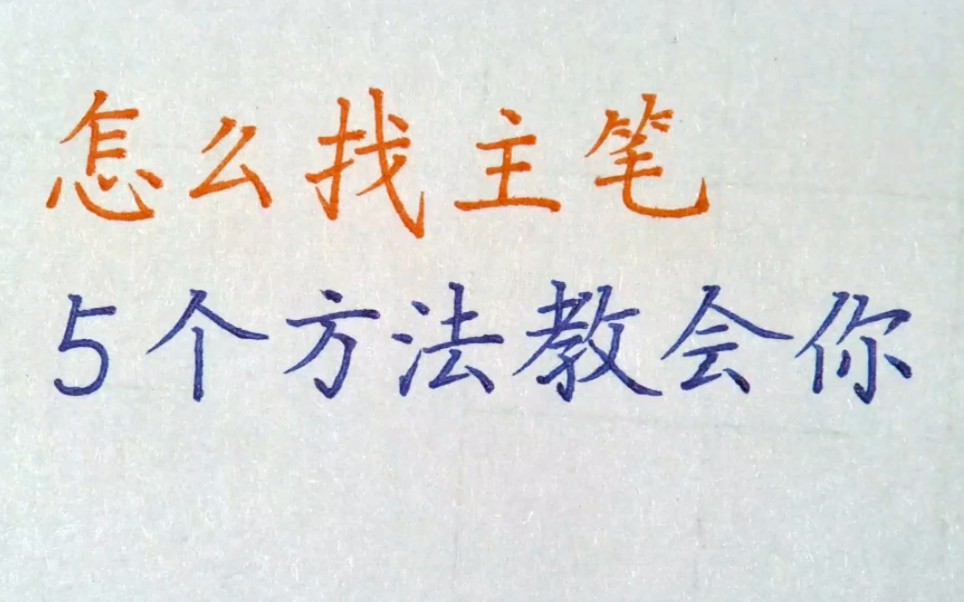 怎么找主笔
5个方法教会你